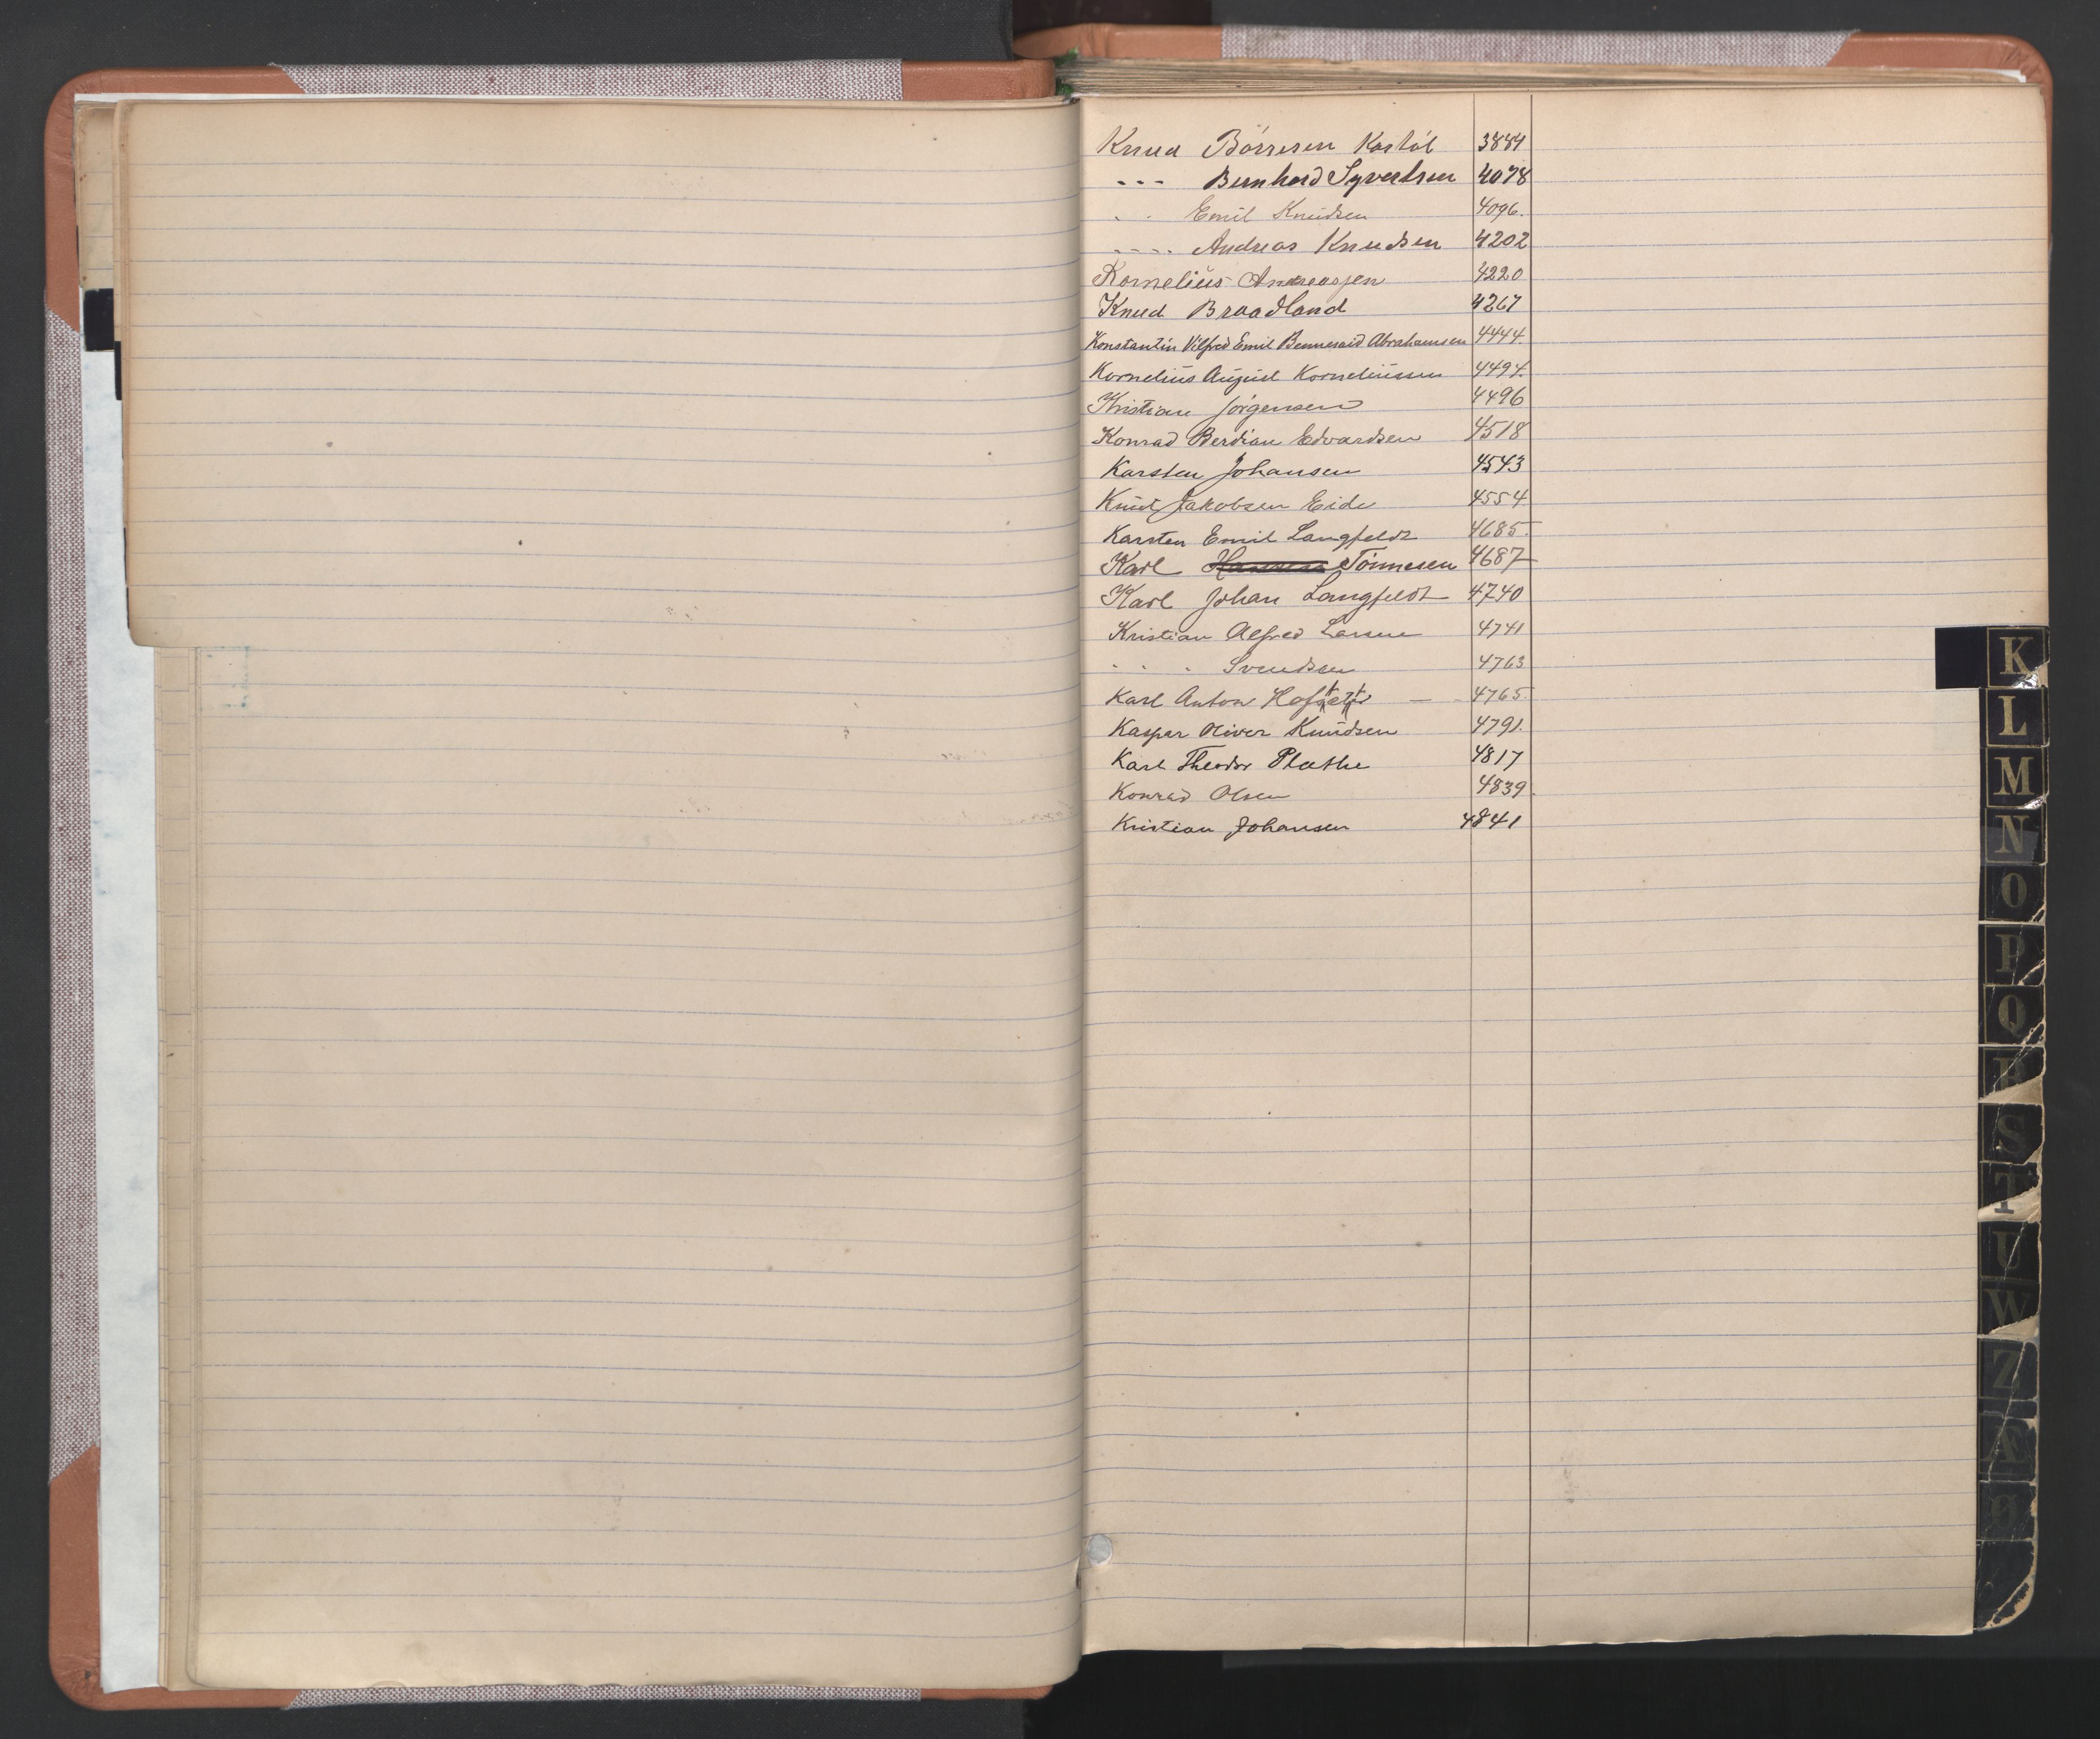 Knud Börresen Kastöl 3884
--- Bernhard Syvertsen 4078
. . Emil Knudsen 4096.
---- Andreas Knudsen 4202
Kornelius Andreassen 4220
Knud Braadland 4267
Konstantin Vilfred Emil Abrahamsen 4444.
Kornelius August Korneliussen 4494.
Kristian Jörgensen 4496
Konrad Berdian Edvardsen 4518
Karsten Johansen 4543
Knut Jakobsen Eide 4554
Karsten Emil Langfeldt 4685.
Karl Tönnesen 4687
Karl Johan Langfeldt 4740
Kristian Alfred Larsen 4741
. . . Svendsen 4763
Karl Anton — 4765.
Kaspar Oliver Knudsen 4791.
Karl Theodor Plathe 4817
Konrad Olsen 4839.
Kristian Johansen 4841
K
L
M
N
O
P
Q
R
S
T
U
W
Z
Æ
Ø